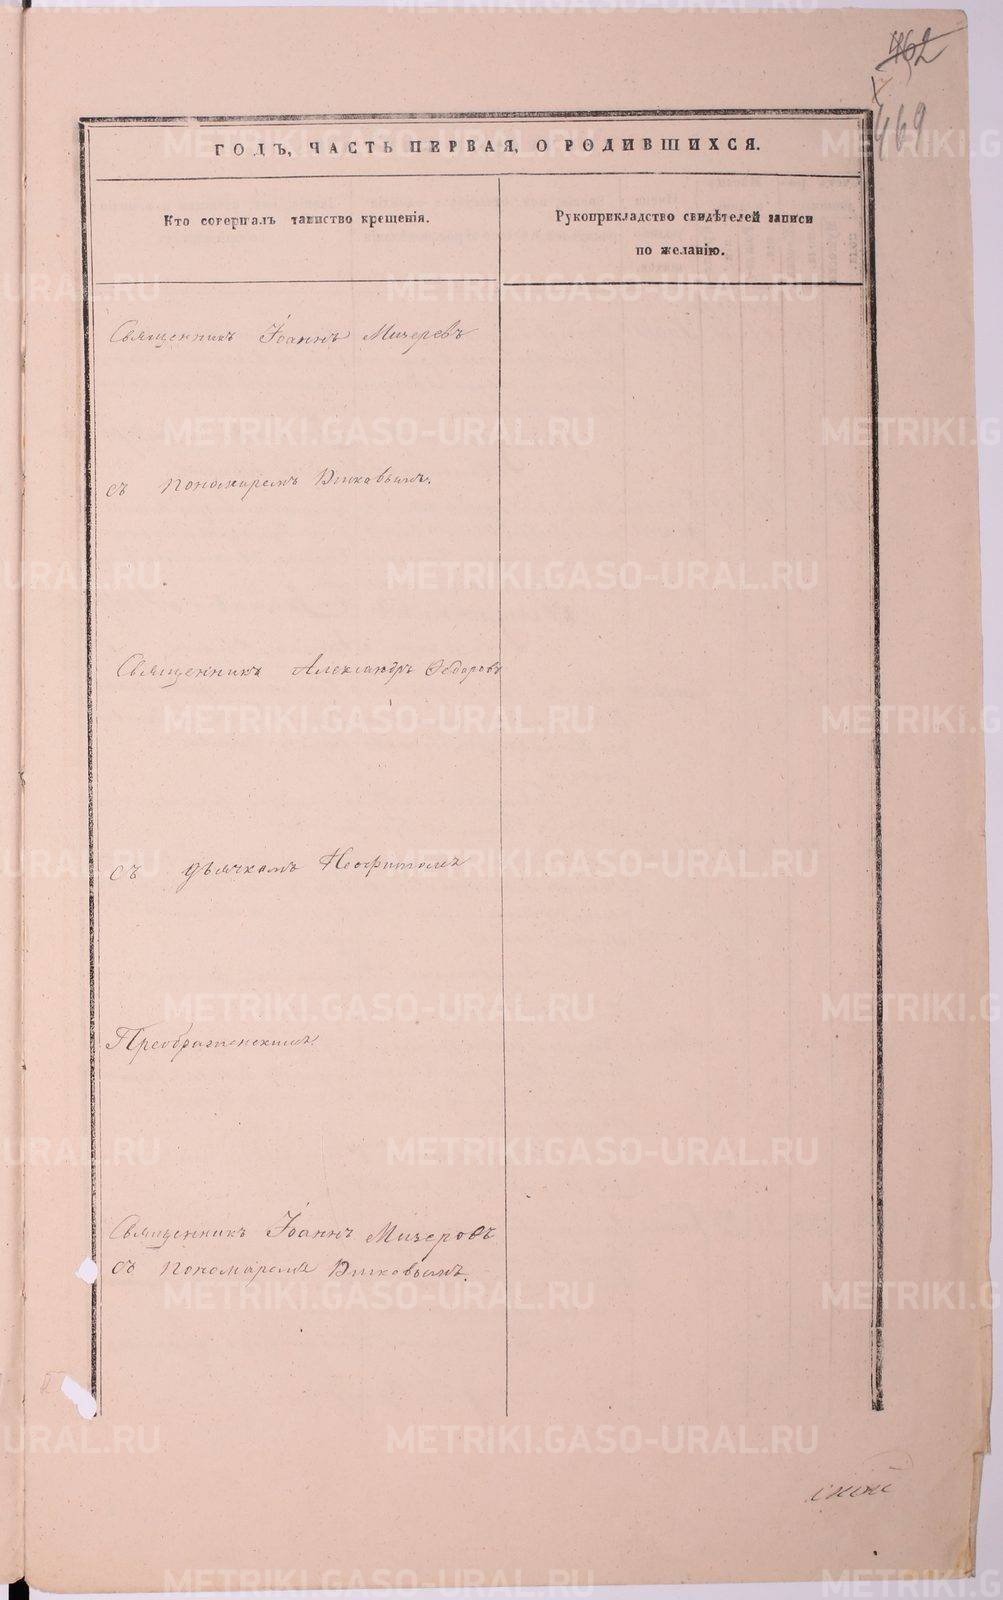 462
469
ГОДЪ, ЧАСТЬ ПЕРВАЯ, О РОДИВШИХСЯ.
Кто совершалъ таинство крещенія.
Рукоприкладство свидѣтелей записи
по желанію.
Священникъ Іоаннъ Мизеровъ
съ пономаремъ
Священникъ Александръ Ѳедоровъ
съ дьячкомъ Неофитомъ
Преображенскимъ.
Священникъ Іоаннъ Мизеровъ
съ пономаремъ
METRIKI.GASO-URAL.RU